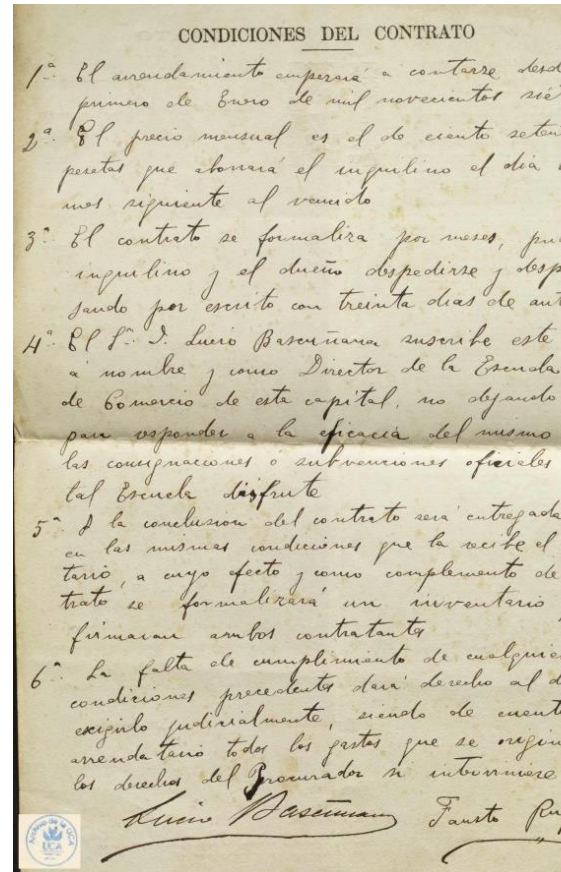 CONDICIONES DEL CONTRATO
1ª El arrendamiento empezará a contarse desd
primero de Enero de mil novecientos sié
2ª El precio mensual es el de ciento seten
pesetas que abonará el inquilino el dia
mes siguiente al vencido
3ª El contrato se formaliza por meses, pu
inquilino y el dueño despedirse y desp
sando por escrito con treinta dias de ant
4ª El Sr. D. Lucio Bascuñana suscribe este
a nombre y como Director de la Escuela
de Comercio de esta capital, no dejando
para responder a la eficacia del mismo
las consignaciones o subvenciones oficiales
tal Escuela disfrute
5ª A la conclusion del contrato será entregada
en las mismas condiciones que la recibe el
tario, a cuyo efecto y como complemento de
trato se formalizará un inventario
firmaran ambos contratantes
6ª La falta de cumplimiento de cualquie
condiciones precedentes dará derecho al d
exigirlo judicialmente, siendo de cuent
arrendatario todos los gastos que se origin
los derechos del Procurador si interviniere
Lucio Bascuñana Fausto
Archivo de la UCA
UCA